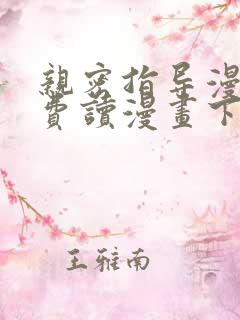 親密指导漫
費讀漫畫下
王雅南